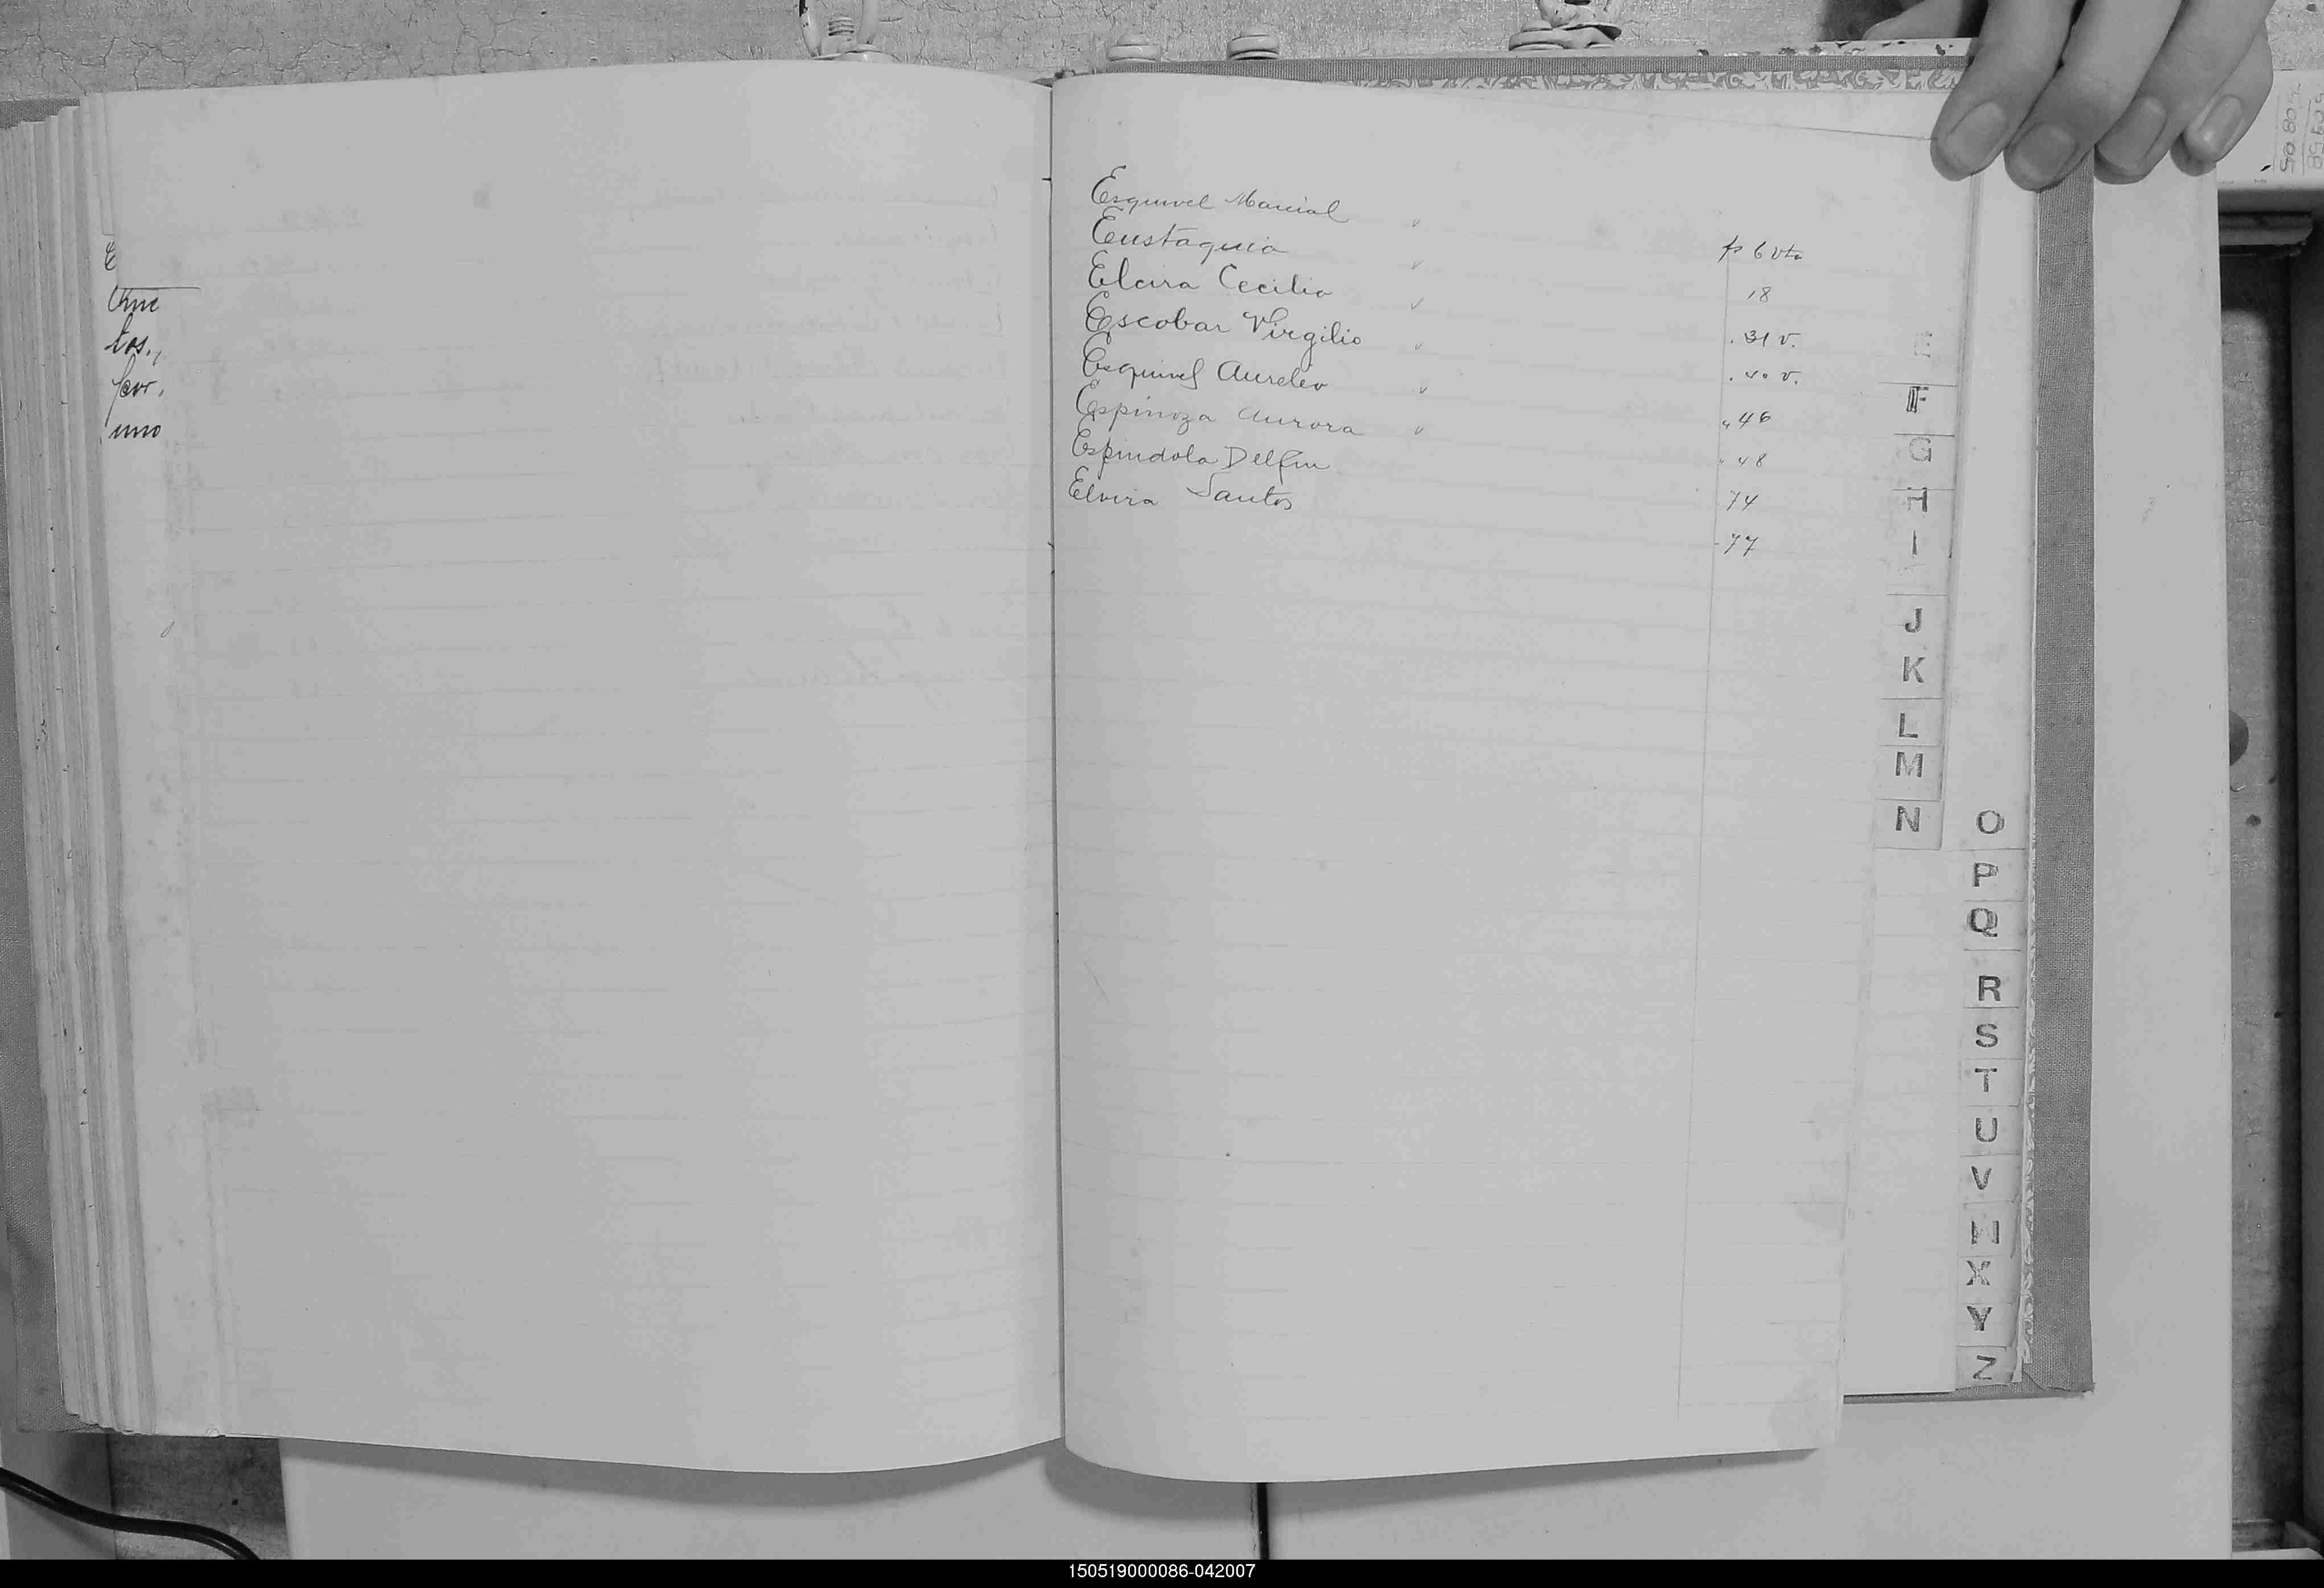 E
tos.,
for.
uno
Esquivel Marcial v
Eustaquia v fs 6 vta
Elcira Cecilia v 18
Escobar Virgilio v . 31 v.
Esquivel Aurelio v . 40 v.
Espinoza Aurora v " 46
Espindola Delfin " 48
Elvira Santos 74
- 77
E
F
G
H
I
J
K
L
M
N
O
P
Q
R
S
T
U
V
X
Y
Z
150519000086-042007